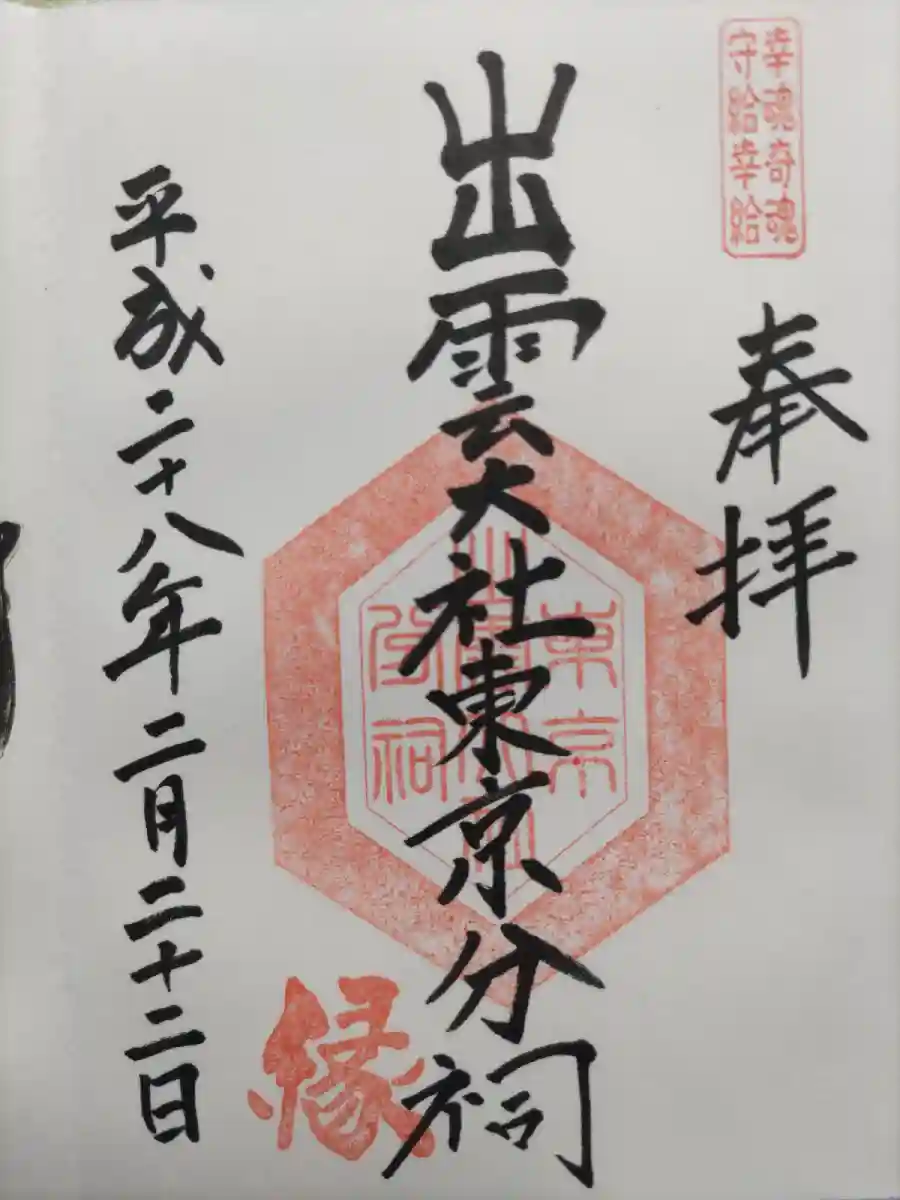 幸魂奇魂
守給幸給
奉拝
出雲大社東京分祠
東京
出雲大社
分祠
縁
平成二十八年二月二十二日